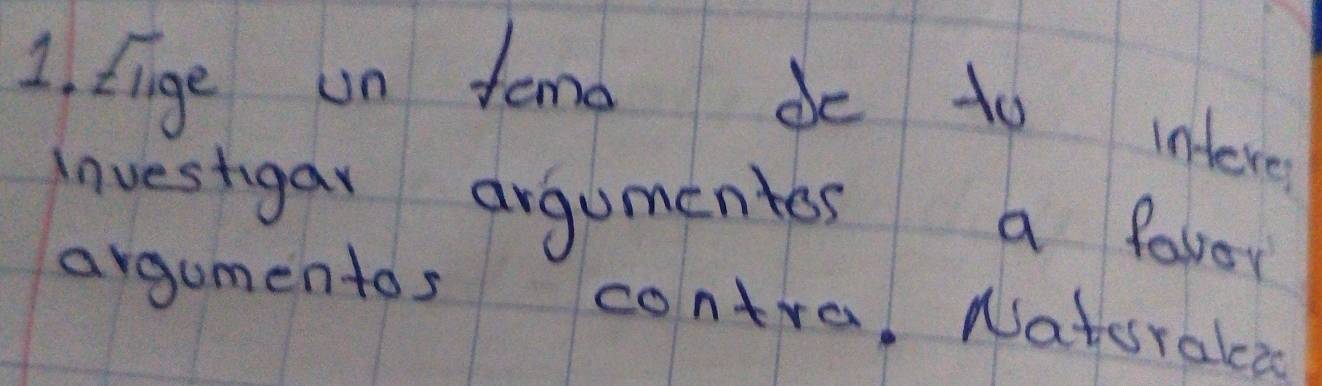 1. Elige un tema de tu interes
investigar argumentos a favor
argumentos contra. Naturaleza